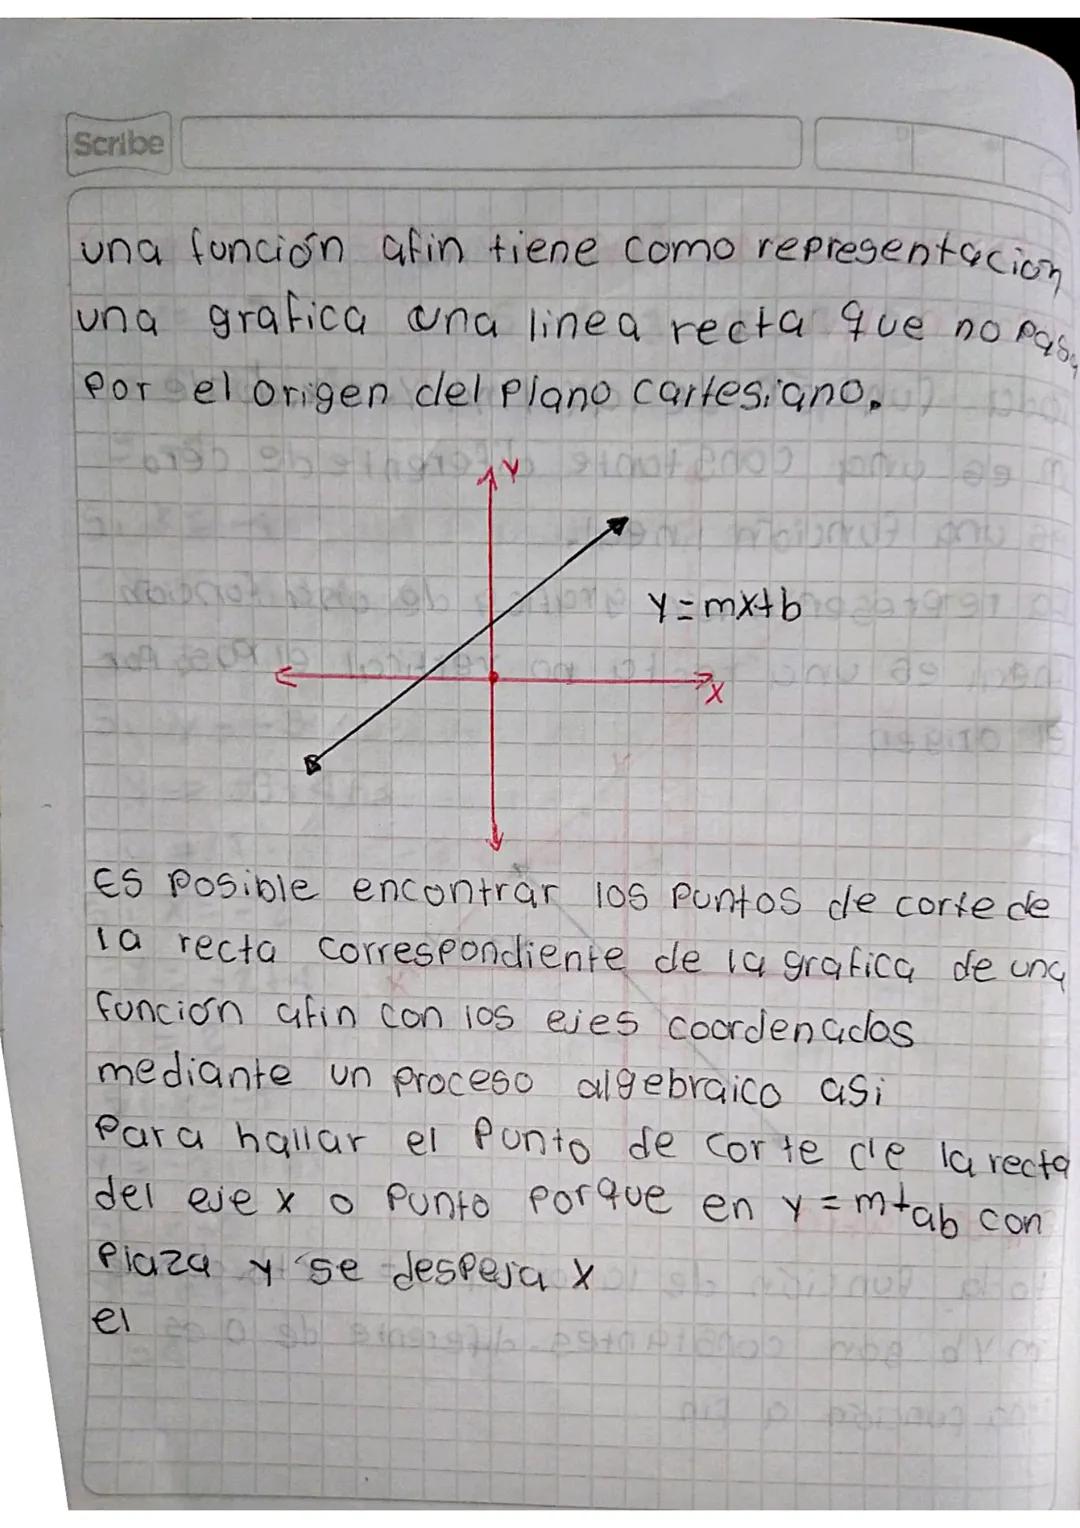 Scribe
una función afin tiene como representacion
una grafica una linea recta que no pasa
por el origen del plano cartesiano.
Y
y=mx+b
X
Es posible encontrar los puntos de corte de
la recta correspondiente de la grafica de una
función afin con los ejes coordenados
mediante un proceso algebraico asi
Para hallar el punto de corte de la recta
del eje x o punto porque en y = m+ab con
plaza y se despeja x
el